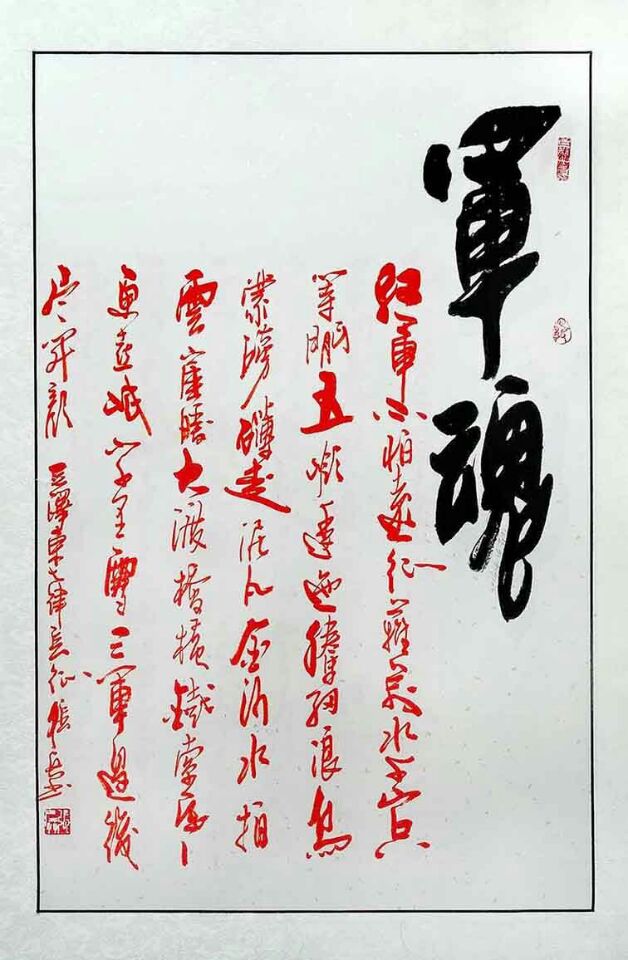 軍魂
红軍不怕遠征難萬水千山只
等閑五嶺逶迤騰細浪烏
蒙磅礴走泥丸金沙水拍
雲崖暖大渡橋横鐵索寒
更喜岷山千里雪三軍過後
盡開顔 毛澤東七律長征